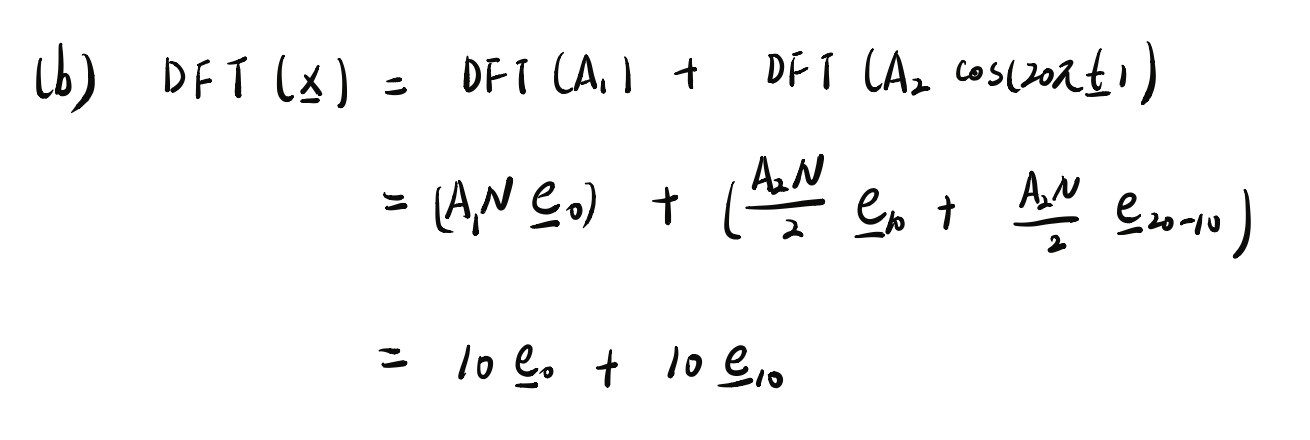 (b) DFT(x̲) = DFT(A₁) + DFT(A₂ cos(20πt̲))
= (A₁N e̲₀) + (A₂N/2 e̲₁₀ + A₂N/2 e̲₂₀₋₁₀)
= 10 e̲₀ + 10 e̲₁₀